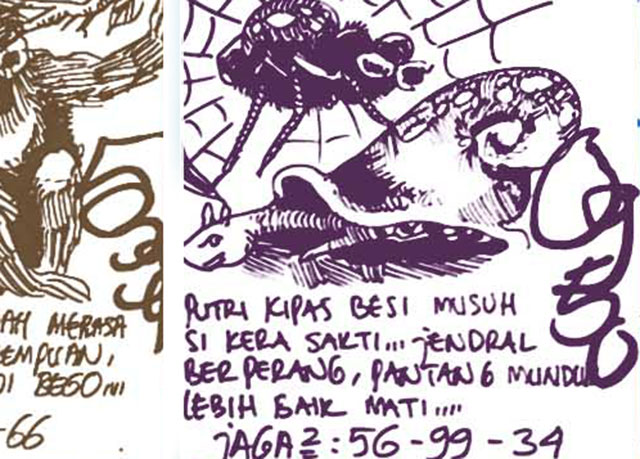 AH MERASA
EMPUAN,
DI BEGO...
-66
PUTRI KIPAS BESI MUSUH
SI KERA SAKTI... JENDRAL
BERPERANG, PANTANG MUNDU
LEBIH BAIK MATI....
JAGA2 : 56-99-34